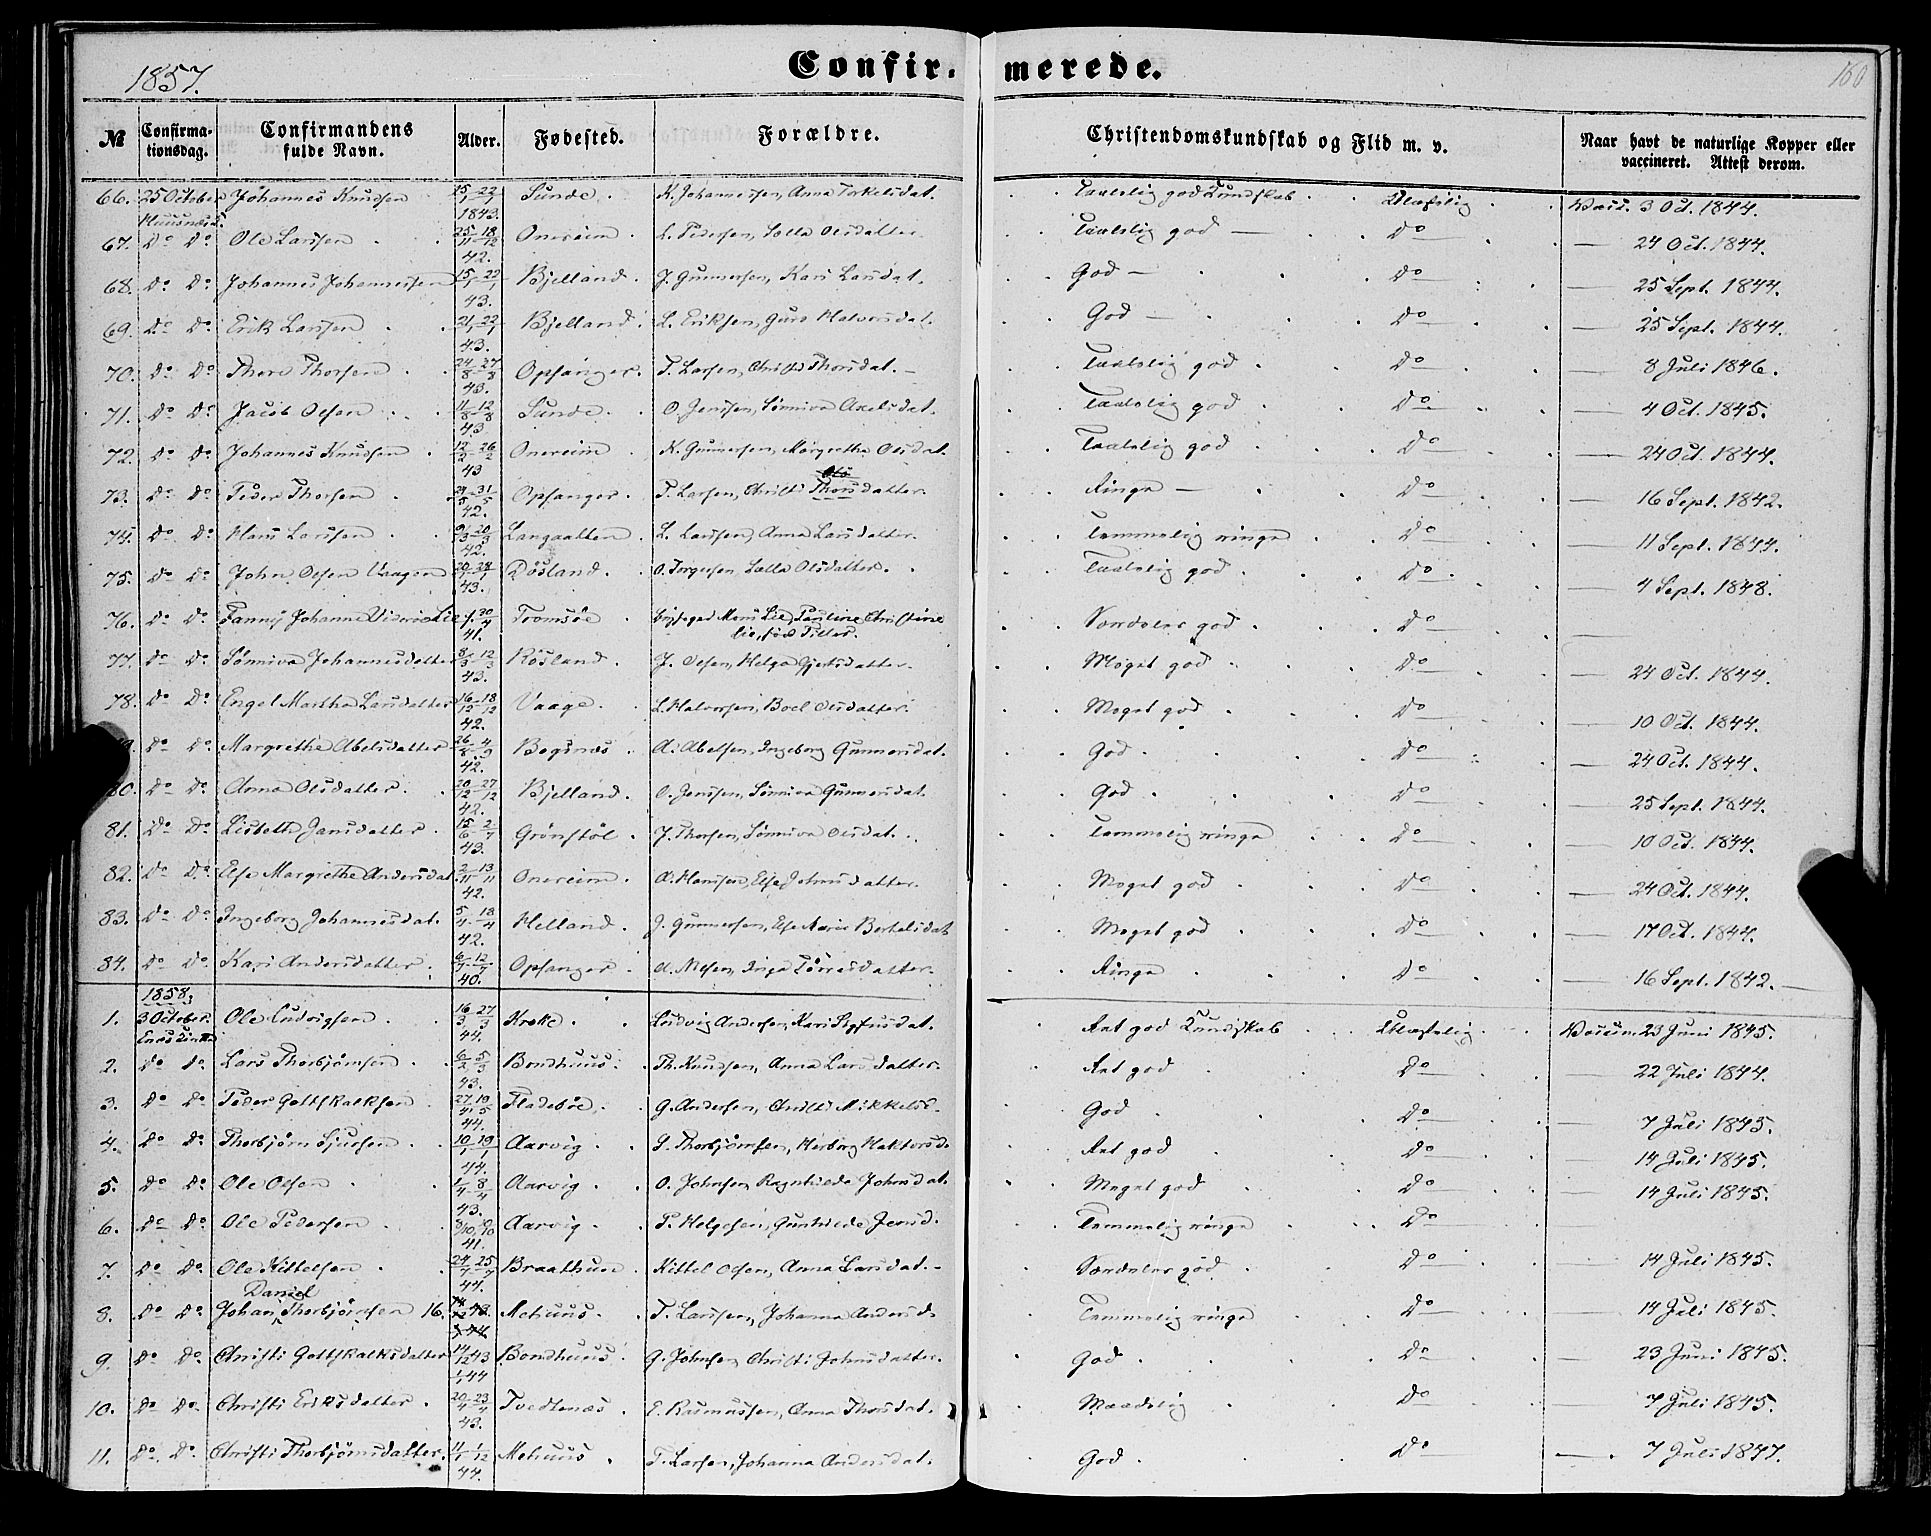 1857.
Confirmerede.
160
№ Confirmationsdag. Confirmandens fulde Navn. Alder. Fødested. Forældre. Christendomskundskab og Flid m. v. Naar havt de naturlige Kopper eller vaccineret. Attest derom.
66. 25 October Johannes Knudsen 1843. Sunde. K. Johannessen, Anna Torkelsdat. Taalelig god Kundskab Ulastelig Vacc. 3 Oct. 1844.
67. Do Do Ole Larssen 42. Onereim L. Pedersen, Salla Olsdatter. Taalelig god Do 24 Oct. 1844.
68. Do Do Johannes Johannessen 43. Bjelland. J. Gunnersen, Kari Larsdat. God Do 25 Sept. 1844.
69. Do Do Erik Larssen 43. Bjelland. L. Eriksen, Guro Halvorsdat. God Do 25 Sept. 1844.
70. Do Do Thore Thorsen 43. Opsanger. T. Larsen, Christi Thorsdat. Taalelig god Do 8 Juli 1846.
71. Do Do Jacob Olsen 43 Sunde. O. Jenssen, Sønniva Axelsdat. Taalelig god Do 4 Oct. 1845.
72. Do Do Johannes Knudsen 43 Onereim K. Gunnersen, Margrethe Olsdat. Taalelig god Do 24 Oct. 1844.
73. Do Do Peder Thorsen 42. Opsanger. T. Larsen, Christi Thorsdatter. Ringe Do 16 Sept. 1842.
74. Do Do Hans Larssen 42. Langaatten L. Larssen, Anna Larsdatter. Temmelig ringe Do 11 Sept. 1844.
75. Do Do John Olsen Vaagen 43. Røsland. O. Torgersen, Salla Olsdatter. Taalelig god Do 4 Sept. 1848.
76. Do Do Fanny Johanne Lie 41. Tromsøe. Mons Lie, Pauline Christine Lie, fød Tiller. Særdeles god Do
77. Do Do Sønniva Johannesdatter 43. Røsland. J. Olsen, Helga Gjertsdatter. Meget god Do 24 Oct. 1844.
78. Do Do Engel Martha Larsdatter 42. Vaage. L. Halvorsen, Boel Olsdatter. Meget god Do 10 Oct. 1844.
79. Do Do Margrethe Abelsdatter 42. Bogsnæs A. Abelsen, Ingeborg Gunnersdat. God Do 24 Oct. 1844.
80. Do Do Anna Olsdatter. 42. Bjelland. O. Jenssen, Sønniva Gunnersdat. God Do 25 Sept. 1844.
81. Do Do Lisbeth Jansdatter. 43. Grønstøl. J. Thorsen, Sønniva Olsdat. Temmelig ringe Do 10 Oct. 1844.
82. Do Do Else Margrethe Andersdat. 42. Onereim. A. Hanssen, Else Johnsdatter. Meget god Do 24 Oct. 1844.
83. Do Do Ingeborg Johannesdat. 42. Helland. J. Gunnersen, Else Marie Bertelsdat Meget god Do 17 Oct. 1844.
84. Do Do Kari Andersdatter 40. Opsanger. A. Nelsen, Inga Tørresdatter. Ringe Do 16 Sept. 1842.
1858.
1. 3 October Ole Ludvigsen 44. Kroke. Ludvig Andersen, Kari Sigfusdat. Ret god Kundskab Ulastelig Vaccin. 23 Juni 1845.
2. Do Do Lars Thorbjørnsen 43. Bondhuus. Th. Knudsen, Anna Larsdatter. Ret god Do 22 Juli 1844.
3. Do Do Peder Gottskalksen 44. Fladebøe. G. Andersen, Christi Mikkelsd. God Do 7 Juli 1845.
4. Do Do Thorbjørn Sjursen 44. Aarvig S. Thorbjørnsen, Herborg Haktorsd. Ret god Do 14 Juli 1845.
5. Do Do Ole Olsen 43. Aarvig. O. Johnsen, Ragnhilde Johnsdat. Meget god Do 14 Juli 1845.
6. Do Do Ole Pedersen 41. Aarvig. P. Helgesen, Gunhilde Jensd. Temmelig ringe Do
7. Do Do Ole Kittelsen 44. Braathun Kittel Olsen, Anna Larsdat. Særdeles god Do 14 Juli 1845.
Daniel
8. Do Do Johan Thorbjørnsen 16. Mehuus. T. Larssen, Johanna Andersd. Temmelig ringe Do 14 Juli 1845.
9. Do Do Christi Gottskalksdatter 43 44 Bondhuus. G. Johnsen, Christi Johnsdatter. God Do 23 Juni 1845.
10. Do Do Christi Eriksdatter. 43. Tvedtenæs. E. Rasmussen, Anna Thorsdat. Maadelig Do 7 Juli 1845.
11. Do Do Christi Thorbjørnsdatter 44. Mehuus T. Larsen, Johanna Andersdat. God Do 7 Juli 1847.